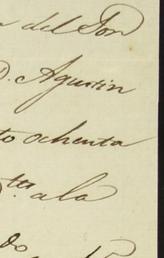 del Son
D. Agustin
to ochenta
tts a la
do